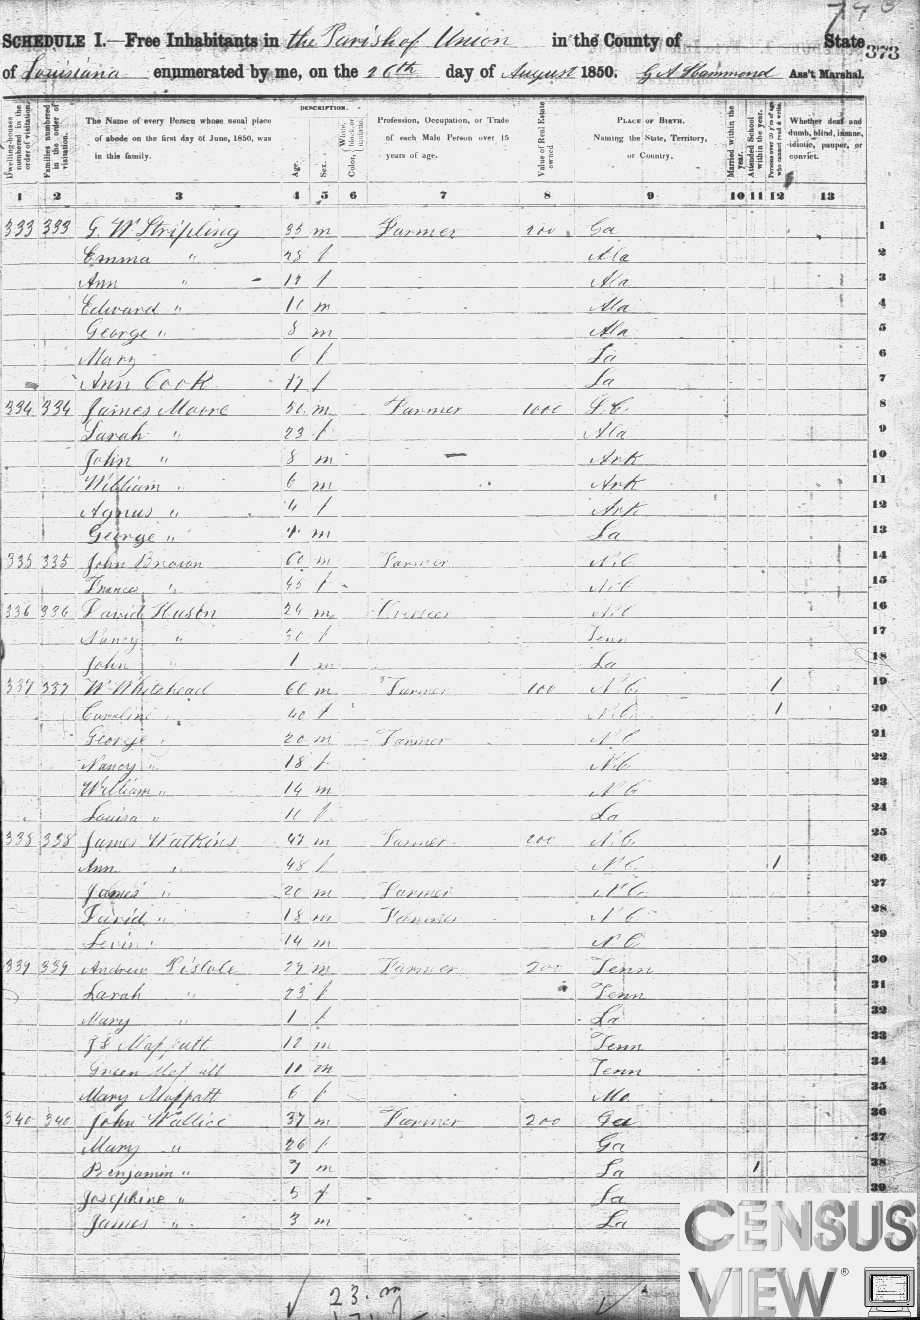 SCHEDULE I.—Free Inhabitants in the Parish of Union in the County of State
373
of Louisiana enumerated by me, on the 26th day of August 1850. G A Hammond Ass't Marshal.
Dwelling-houses numbered in the order of visitation.
Families numbered in the order of visitation.
The Name of every Person whose usual place of abode on the first day of June, 1850, was in this family.
DESCRIPTION.
Age.
Sex.
Color, White, black, or mulatto.
Profession, Occupation, or Trade of each Male Person over 15 years of age.
Value of Real Estate owned.
PLACE OF BIRTH. Naming the State, Territory, or Country.
Married within the year.
Attended School within the year.
Persons over 20 y'rs of age who cannot read & write.
Whether deaf and dumb, blind, insane, idiotic, pauper, or convict.
1 2 3 4 5 6 7 8 9 10 11 12 13
333 333 G. W Stripling 35 m Farmer 200 Ga 1
Emma " 28 f Ala 2
Ann " 12 f Ala 3
Edward " 10 m Ala 4
George " 8 m Ala 5
Mary 6 f La 6
Ann Cook 17 f La 7
334 334 James Moore 50 m Farmer 1000 S.C. 8
Sarah " 23 f Ala 9
John " 8 m Ark 10
William " 6 m Ark 11
Agnus " 4 f Ark 12
George " m La 13
335 335 John Brown 60 m Farmer N.C 14
Frances " 45 f N.C 15
336 336 David Huston 24 m Overseer N.C 16
Nancy " 30 f Tenn 17
John " 1 m La 18
337 337 W Whitehead 60 m Farmer 100 N.C. 1 19
Caroline " 40 f N.C. 1 20
George " 20 m Farmer N C 21
Nancy " 18 f N.C 22
William " 14 m N C 23
Louisa " 10 f La 24
338 338 James Watkins 47 m Farmer 200 N.C. 25
Ann " 48 f N.C. 1 26
James " 20 m Farmer N C. 27
David " 18 m Farmer N C 28
Levin " 14 m N C 29
339 339 Andrew Pistole 27 m Farmer 200 Tenn 30
Sarah " 23 f Tenn 31
Mary " 1 f La 32
J S Moffatt 12 m Tenn 33
Green Moffatt 11 m Tenn 34
Mary Moffatt 6 f Mo 35
340 340 John Wallice 37 m Farmer 200 Ga 36
Mary " 26 f Ga 37
Benjamin " 7 m La 1 38
Josephine " 5 f La 39
James " 3 m La
23 m
CENSUS
VIEW ®